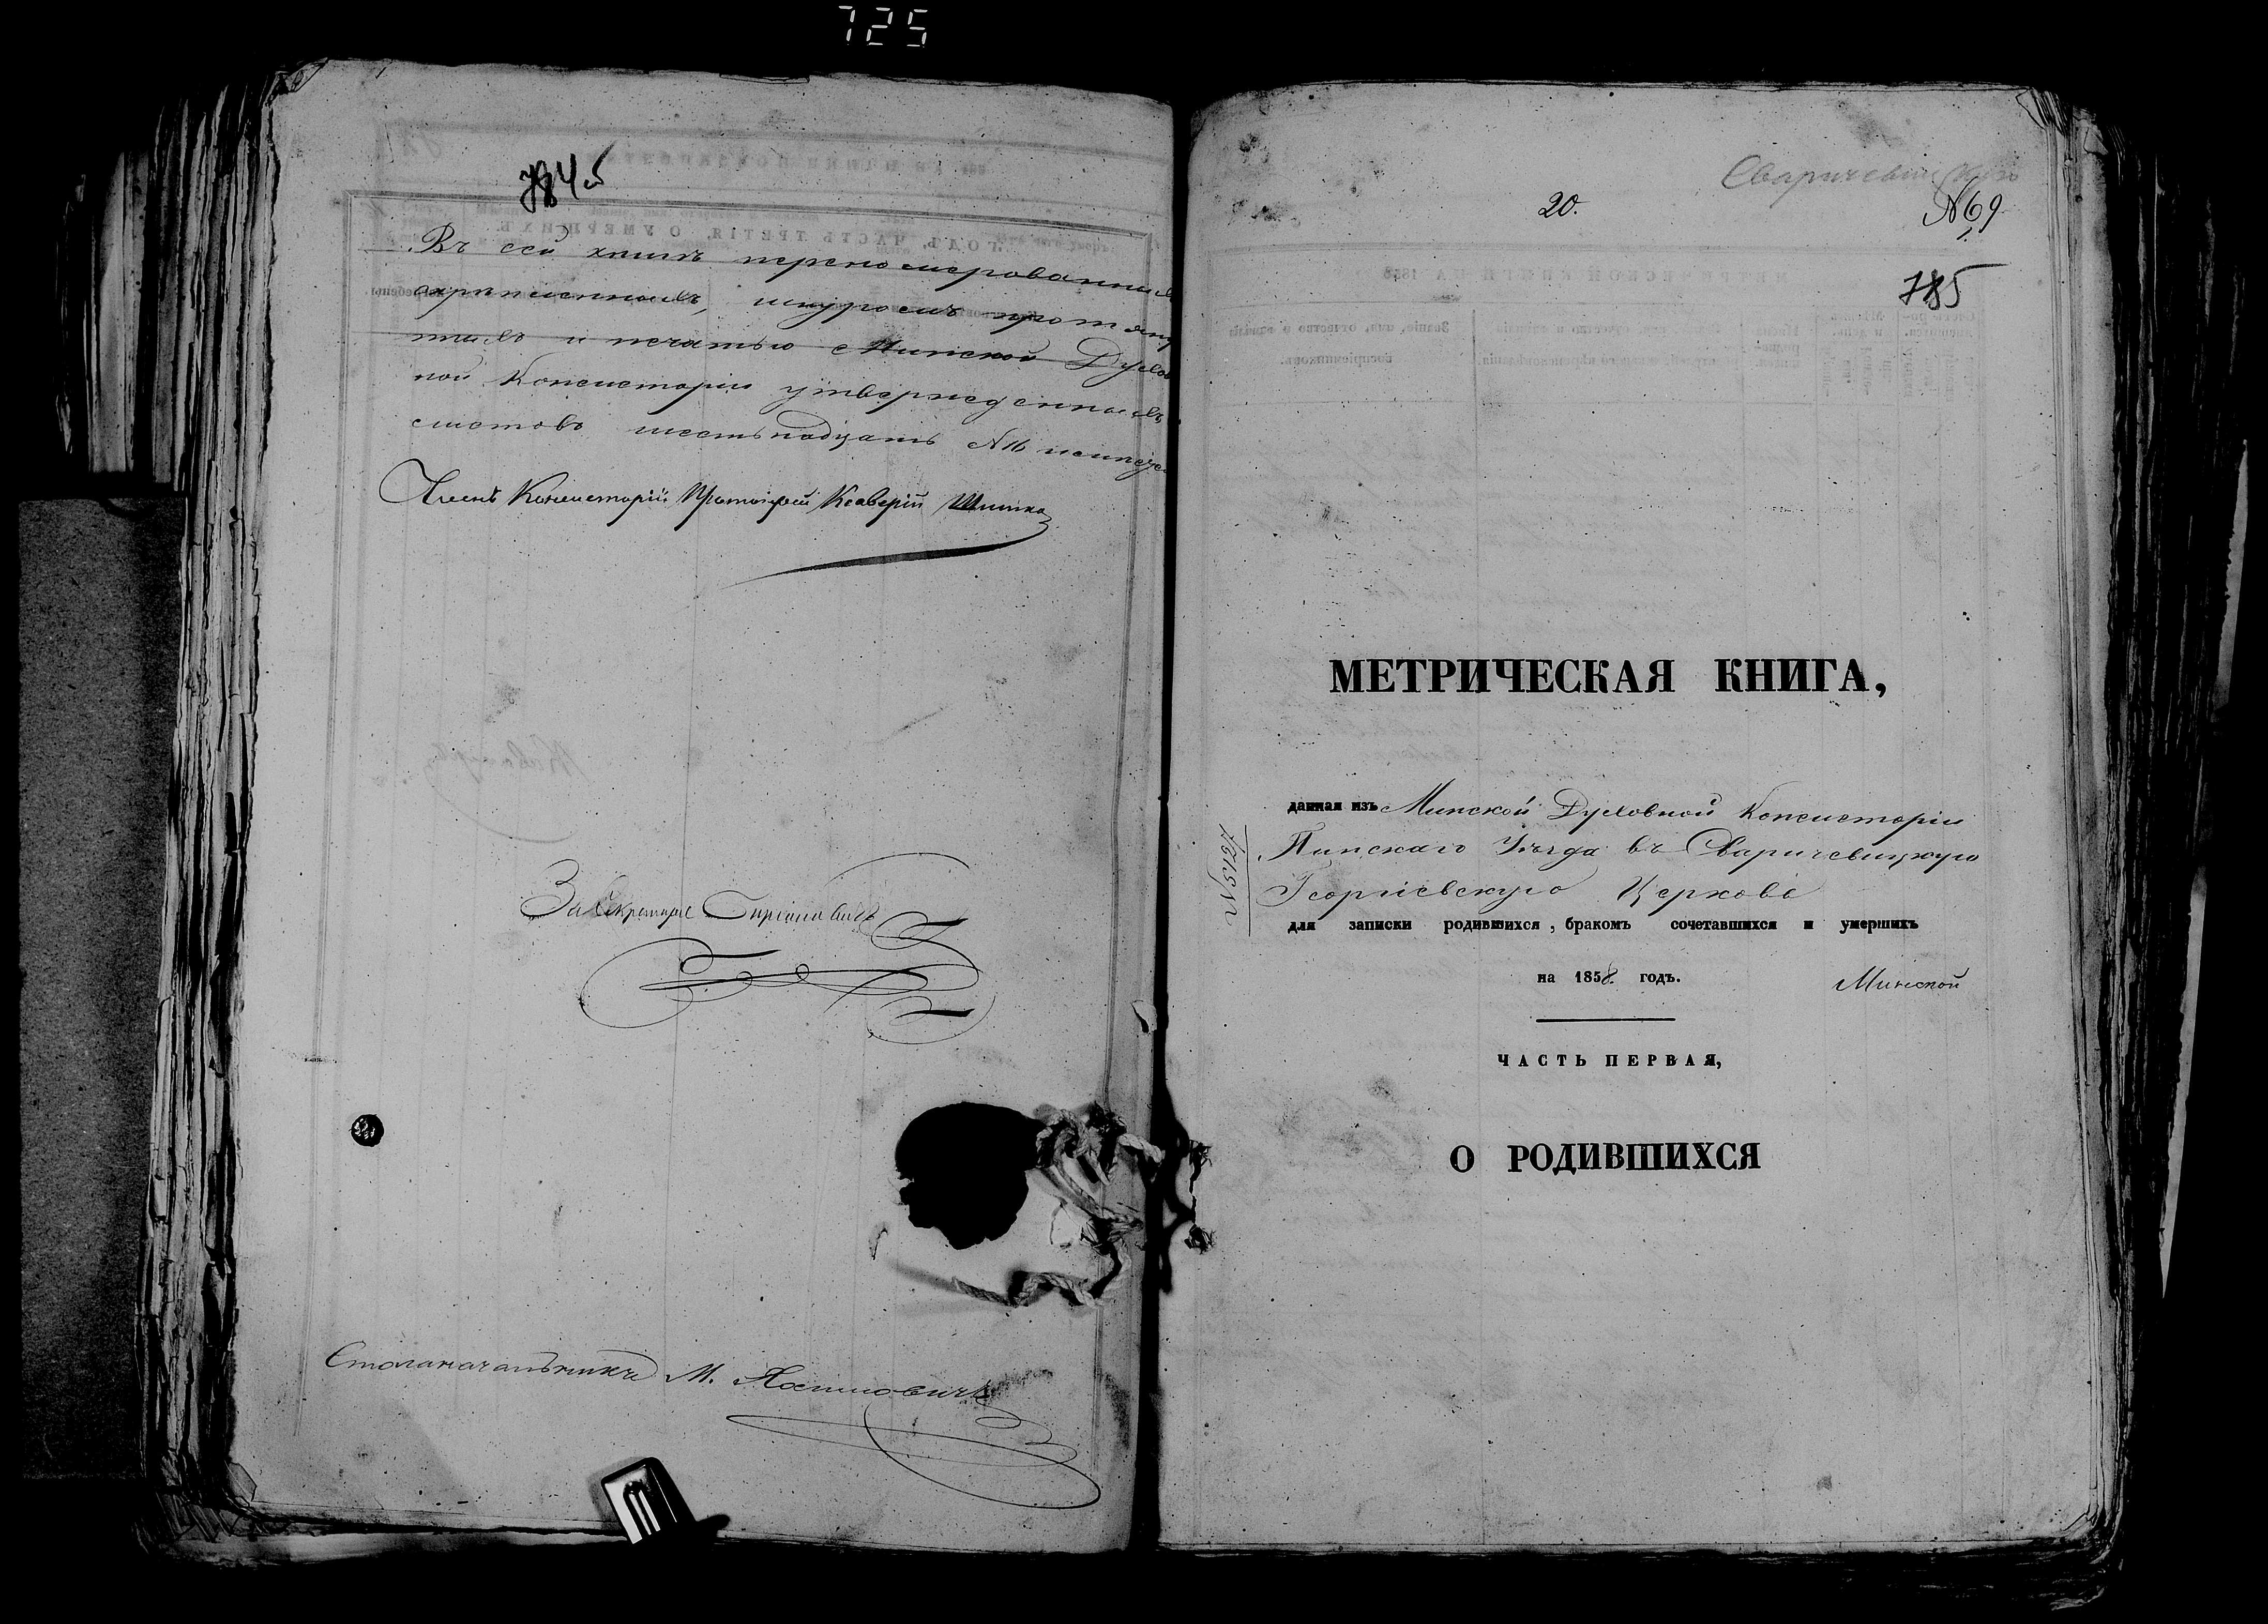 725
784 об
Въ сей книгѣ перенумерованныхъ
скрѣпленныхъ, шнуромъ протяну
тыхъ и печатью Минской Духов
ной Консисторіи утвержденныхъ
листовъ шестьнадцать №16
Членъ Консисторіи Протоіерей Ксаверій
За Секретаря
Столоначальникъ М.
20.
№69
785
МЕТРИЧЕСКАЯ КНИГА,
данная изъ Минской Духовной Консисторіи
Пинскаго Уѣзда въ Сваричевицкую
Георгіевскую Церковь
для записки родившихся, бракомъ сочетавшихся и умершихъ
на 1858. годъ.
Минской
ЧАСТЬ ПЕРВАЯ,
О РОДИВШИХСЯ